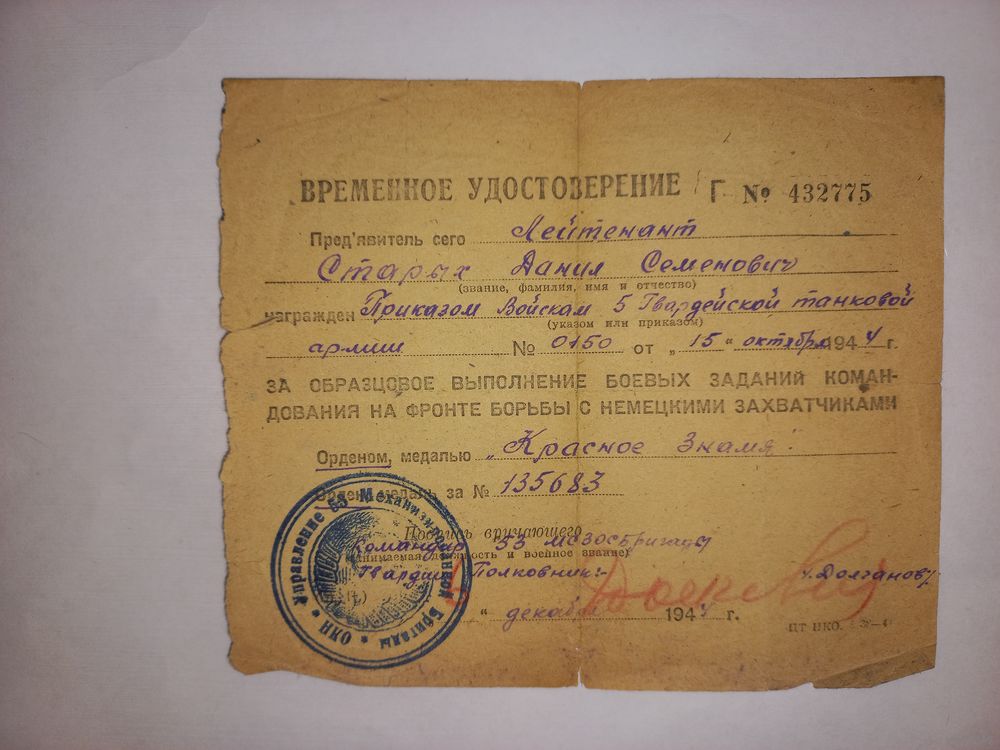 ВРЕМЕННОЕ УДОСТОВЕРЕНИЕ Г № 432775
Пред'явитель сего Лейтенант
Старых Данил Семенович
(звание, фамилия, имя и отчество)
награжден Приказом Войскам 5 Гвардейской танковой
(указом или приказом)
армии № 0150 от „15“ октября 1944 г.
ЗА ОБРАЗЦОВОЕ ВЫПОЛНЕНИЕ БОЕВЫХ ЗАДАНИЙ КОМАН-
ДОВАНИЯ НА ФРОНТЕ БОРЬБЫ С НЕМЕЦКИМИ ЗАХВАТЧИКАМИ
Орденом, медалью „Красное Знамя"
Орден, медаль за № 135683
Подпись вручающего
Командир 53 мотостр
(занимаемая должность и военное звание)
Гвардии Полковник:- Долганов/
“ декабря 1944 г.
Управление 53 Механизированной Бригады * ОНН *